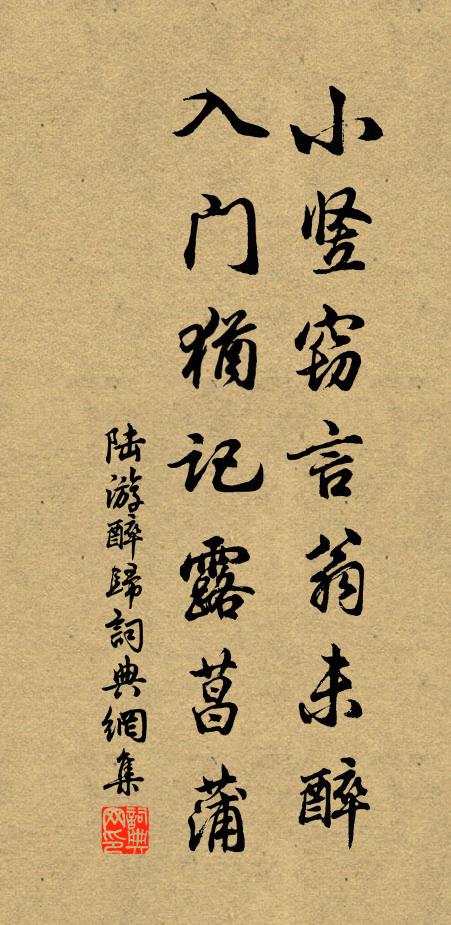 小竖窃言翁未醉
入门犹记露菖蒲
陆游醉歸詞典網集
詞典网印